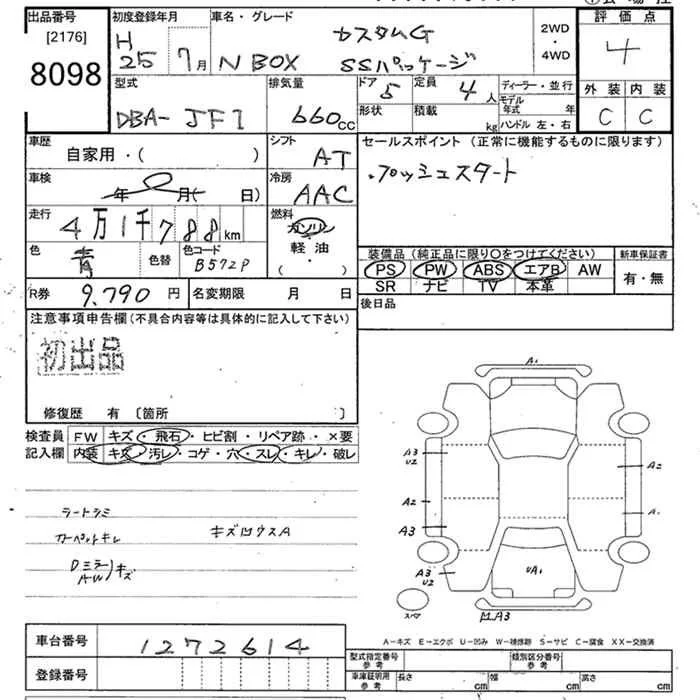 出品番号 初度登録年月 車名・グレード 評価点
[2176] H カスタムG 2WD
8098 25 7月 N BOX SSパッケージ ・ 4WD 4
型式 排気量 ドア 定員 ディーラー・並行 外装 内装
DBA-JF1 660cc 5 4人 モデル年式 年 C C
形状 積載 kg ハンドル 左・右
車歴 シフト セールスポイント (正常に機能するものに限ります)
自家用・( ) AT
車検 冷房 ・プッシュスタート
年 月( 日) AAC
走行 燃料
4万1千788km ガソリン
色 色替 色コード 軽油 装備品 (純正品に限り○をつけてください) 新車保証書
青 B572P ・( ) PS PW ABS エアB AW 有・無
SR ナビ TV 本革
R券 9,790円 名変期限 月 日 後日品
注意事項申告欄 (不具合内容等は具体的に記入して下さい)
初出品
修復歴 有 〔箇所 〕
検査員 FW キズ・飛石・ヒビ割・リペア跡・×要
記入欄 内装 キズ・汚レ・コゲ・穴・スレ・キレ・破レ
A1
A3
U2
A2
A2 A1
A3
ラートシミ キズ凹ウスA
カーペットキレ
Dミラー キズ
AW
A3
U2
UA1
スペア
A3
A-キズ E-エクボ U-凹み W-補修跡 S-サビ C-腐食 XX-交換済
車台番号 1272614
型式指定番号 参考 類別区分番号 参考
登録番号 車庫証明用 参考 長さ cm 幅 cm 高さ cm